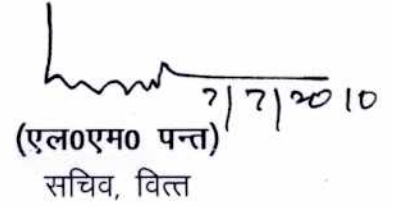 7/7/2010
(एल0एम0 पन्त)
सचिव, वित्त